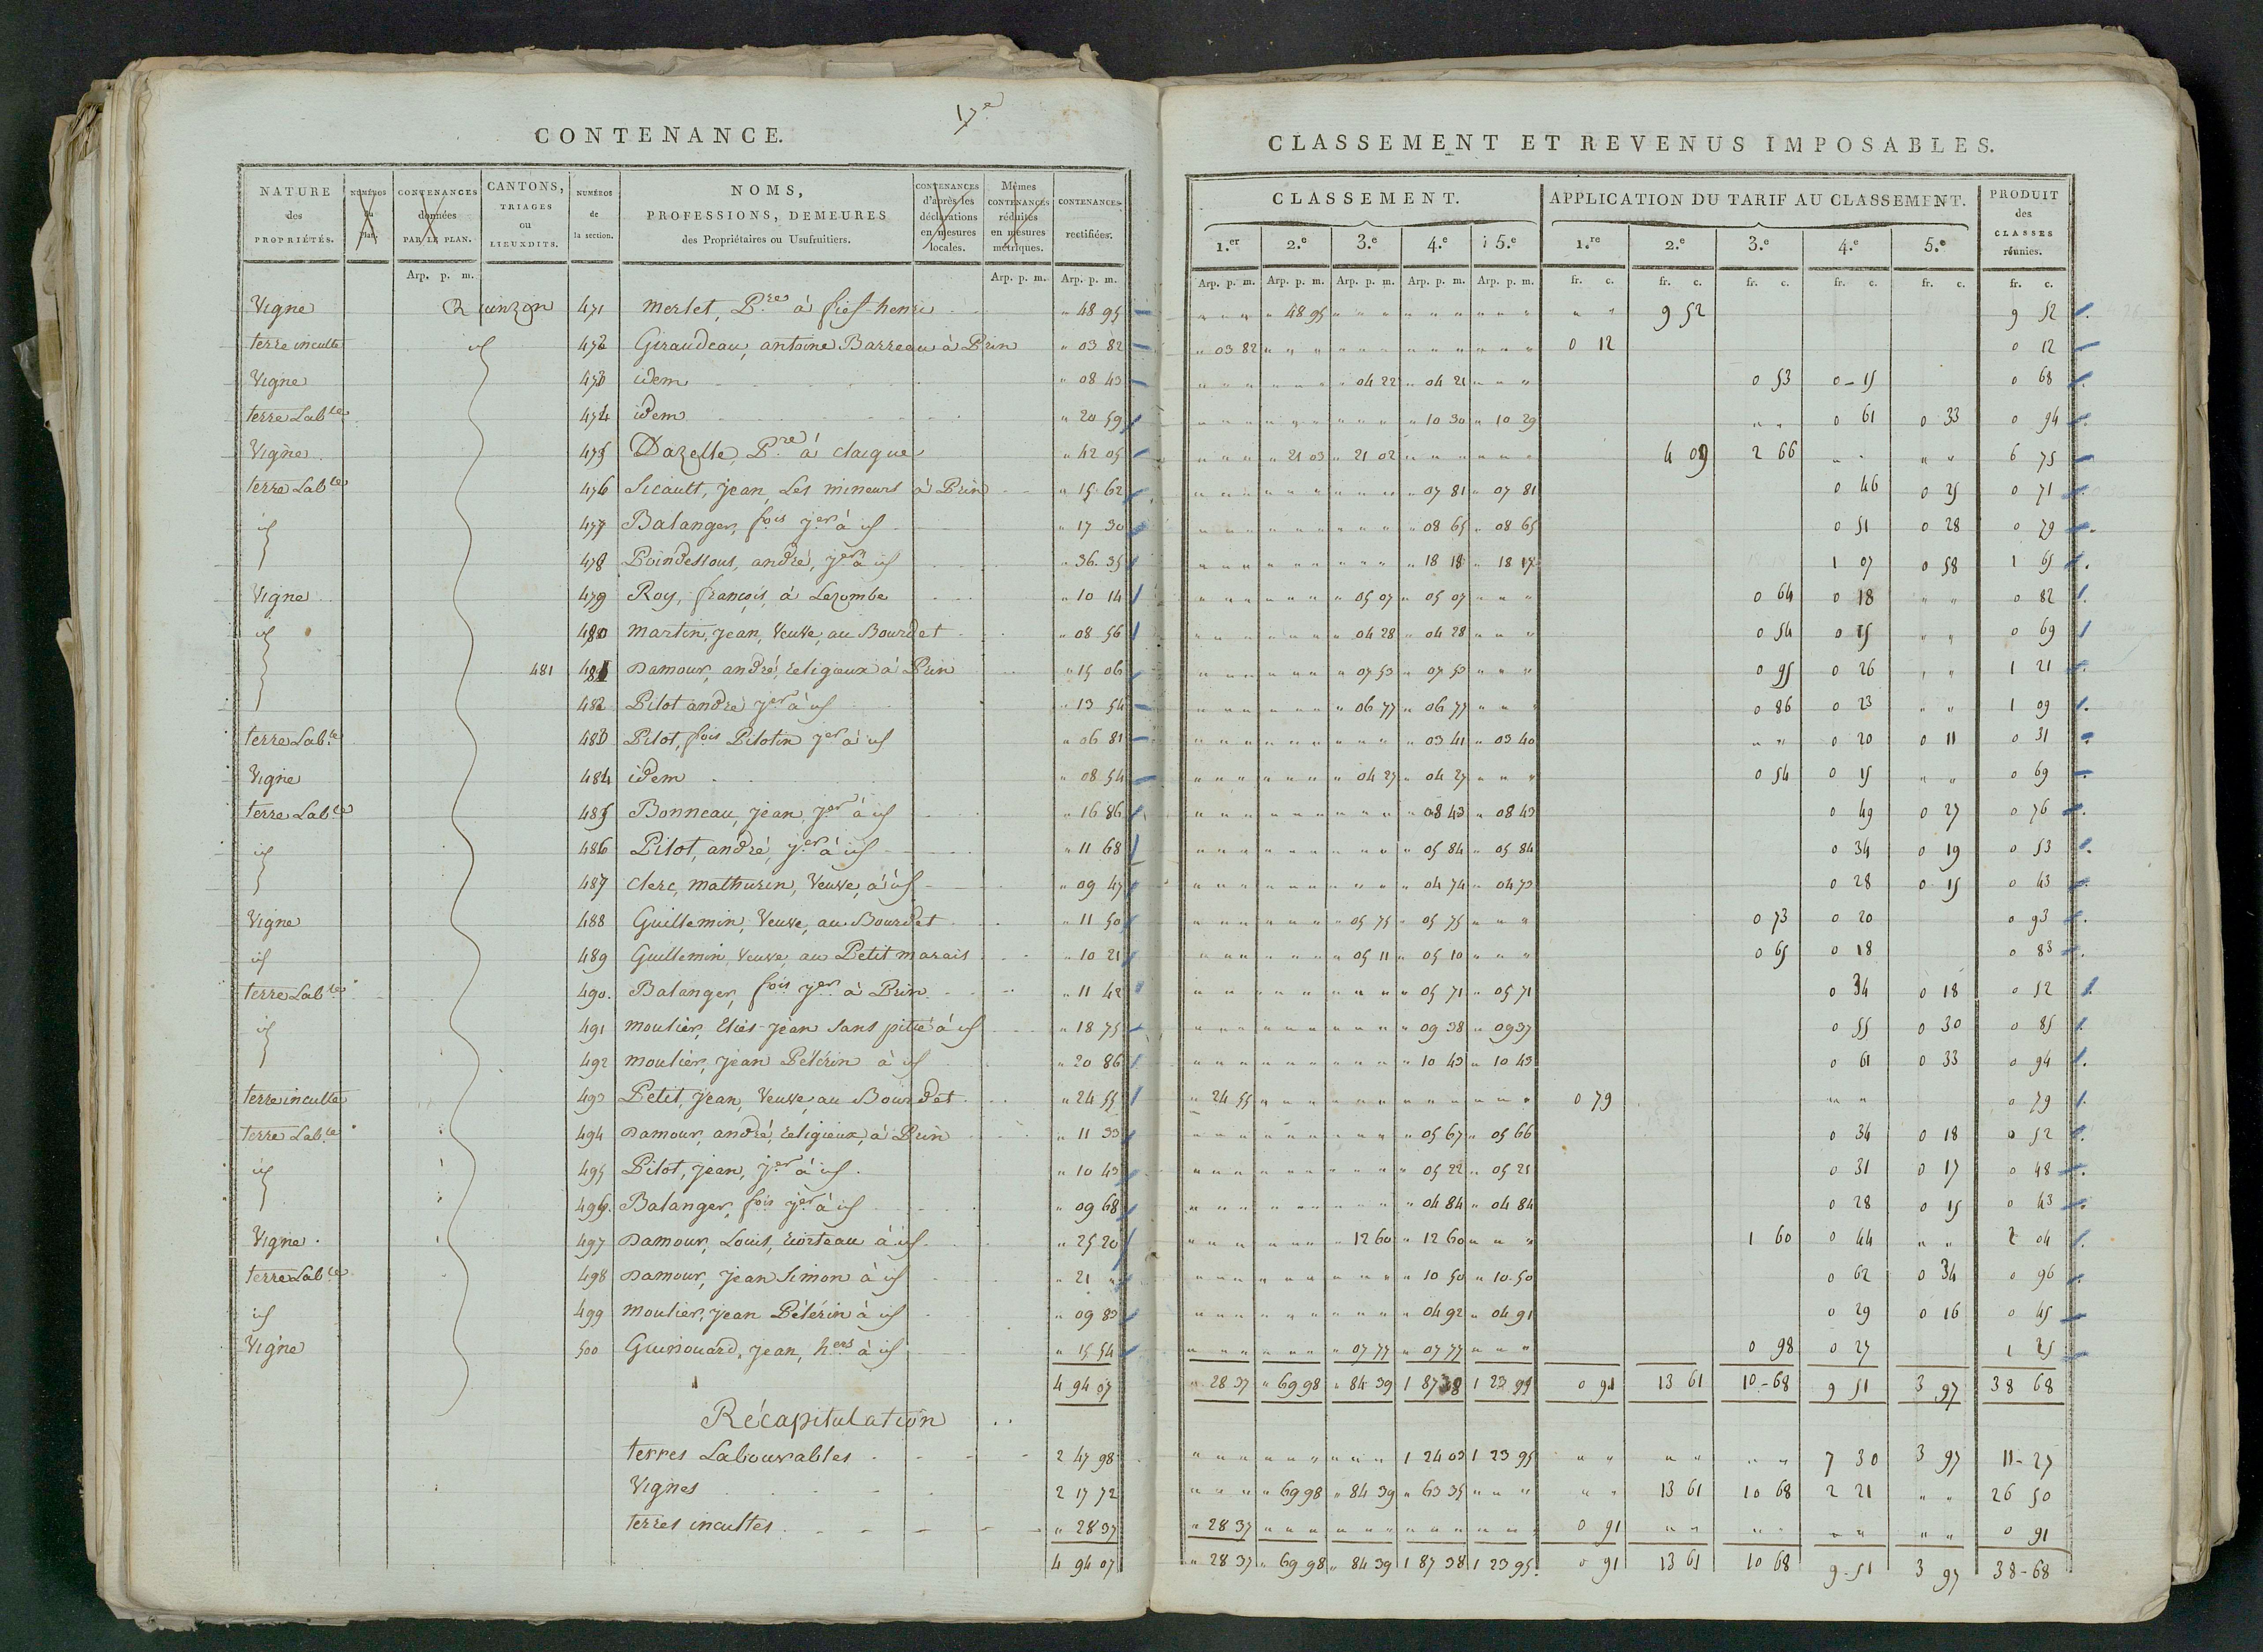 17e
CONTENANCE.
NATURE des PROPRIÉTÉS. NUMÉROS du Plan. CONTENANCES données PAR LE PLAN. CANTONS, TRIAGES ou LIEUXDITS. NUMÉROS de la section. NOMS, PROFESSIONS, DEMEURES des Propriétaires ou Usufruitiers. CONTENANCES d'après les déclarations en mesures locales. Mêmes CONTENANCES réduites en mesures métriques. CONTENANCES rectifiées.
Arp. p. m. Arp. p. m. Arp. p. m.
Vigne Quinzon 471 merlet, P.re à fief-henri " 48 95
terre inculte id 472 Giraudeau, antoine Barreau à Prin " 03 82
Vigne 473 idem " 08 43
terre Lab.le 474 idem " 20 59
Vigne 475 Dazelle, P.re à claigue " 42 05
terre Lab.le 476 Sicault, jean, Les mineurs à Prin " 15 62
id 477 Balanger, fois jer à id " 17 30
478 Poindessous, andré, jer à id " 36 35
Vigne 479 Roy, françois, à Lezombe " 10 14
id 480 martin, jean, Veuve, au Bourdet " 08 56
481 481 Damour, andré, religieux à Prin " 15 06
482 Pilot andré jer à id " 13 54
terre Lab.le 483 Pilot, fois Pilotin jer à id " 06 81
Vigne 484 idem " 08 54
terre Lab.le 485 Bonneau, jean, jer à id " 16 86
id 486 Pilot, andré, jer à id " 11 68
487 clerc, mathurin, Veuve, à id " 09 47
Vigne 488 Guillemin, Veuve, au Bourdet " 11 50
id 489 Guillemin, Veuve, au Petit marais " 10 21
terre Lab.le 490. Balanger, fois jer à Prin " 11 42
id 491 moulier, Eliés-jean sans pitié à id " 18 75
492 moulier, jean Pélérin à id " 20 86
terre inculte 493 Petit, jean, Veuve, au Bourdet " 24 55
terre Lab.le 494 Damour, andré, religieux, à Prin " 11 33
id 495 Pilot, jean, jer à id. " 10 43
496. Balanger, fois jer à id " 09 68
Vigne 497 Damour, Louis, riorteau à id " 25 20
terre Lab.le 498 Damour, jean Simon à id " 21 "
id 499 moulier, jean Pélérin à id " 09 83
Vigne 500 Guinouard, jean, hers à id " 15 54
4 94 07
Récapitulation
terres Labourables 2 47 98
Vignes 2 17 72
terres incultes " 28 37
4 94 07
CLASSEMENT ET REVENUS IMPOSABLES.
CLASSEMENT. APPLICATION DU TARIF AU CLASSEMENT. PRODUIT des CLASSES réunies.
1.er 2.e 3.e 4.e 5.e 1.re 2.e 3.e 4.e 5.e
Arp. p. m. Arp. p. m. Arp. p. m. Arp. p. m. Arp. p. m. fr. c. fr. c. fr. c. fr. c. fr. c. fr. c.
" 48 95 " " 9 52 9 52
" 03 82 0 12 0 12
" 04 22 " 04 21 0 53 0 - 15 0 68
" 10 30 " 10 29 " " 0 61 0 33 0 94
" 21 03 " 21 02 4 09 2 66 " " " " 6 75
" 07 81 " 07 81 0 46 0 25 0 71
" 08 65 " 08 65 0 51 0 28 0 79
" 18 18 " 18 17 1 07 0 58 1 65
" 05 07 " 05 07 0 64 0 18 " " 0 82
" 04 28 " 04 28 0 54 0 15 " " 0 69
" 07 53 " 07 53 0 95 0 26 " " 1 21
" 06 77 " 06 77 0 86 0 23 " " 1 09
" 03 41 " 03 40 " " 0 20 0 11 0 31
" 04 27 " 04 27 0 54 0 15 " " 0 69
" 08 43 " 08 43 0 49 0 27 0 76
" 05 84 " 05 84 0 34 0 19 0 53
" 04 74 " 04 73 0 28 0 15 0 43
" 05 75 " 05 75 0 73 0 20 0 93
" 05 11 " 05 10 0 65 0 18 0 83
" 05 71 " 05 71 0 34 0 18 0 52
" 09 38 " 09 37 0 55 0 30 0 85
" 10 43 " 10 43 0 61 0 33 0 94
" 24 55 0 79 " " 0 79
" 05 67 " 05 66 0 34 0 18 0 52
" 05 22 " 05 21 0 31 0 17 0 48
" 04 84 " 04 84 0 28 0 15 0 43
" 12 60 " 12 60 1 60 0 44 " " 2 04
" 10 50 " 10 50 0 62 0 34 0 96
" 04 92 " 04 91 0 29 0 16 0 45
" 07 77 " 07 77 0 98 0 27 1 25
" 28 37 " 69 98 " 84 39 1 87 38 1 23 95 0 91 13 61 10 - 68 9 51 3 97 38 68
1 24 03 1 23 95 " " " " " " 7 30 3 97 11 - 27
" 69 98 " 84 39 " 63 35 " " 13 61 10 68 2 21 " " 26 50
" 28 37 0 91 " " " " " " " " 0 91
" 28 37 " 69 98 " 84 39 1 87 38 1 23 95. 0 91 13 61 10 68 9 - 51 3 97 38 - 68